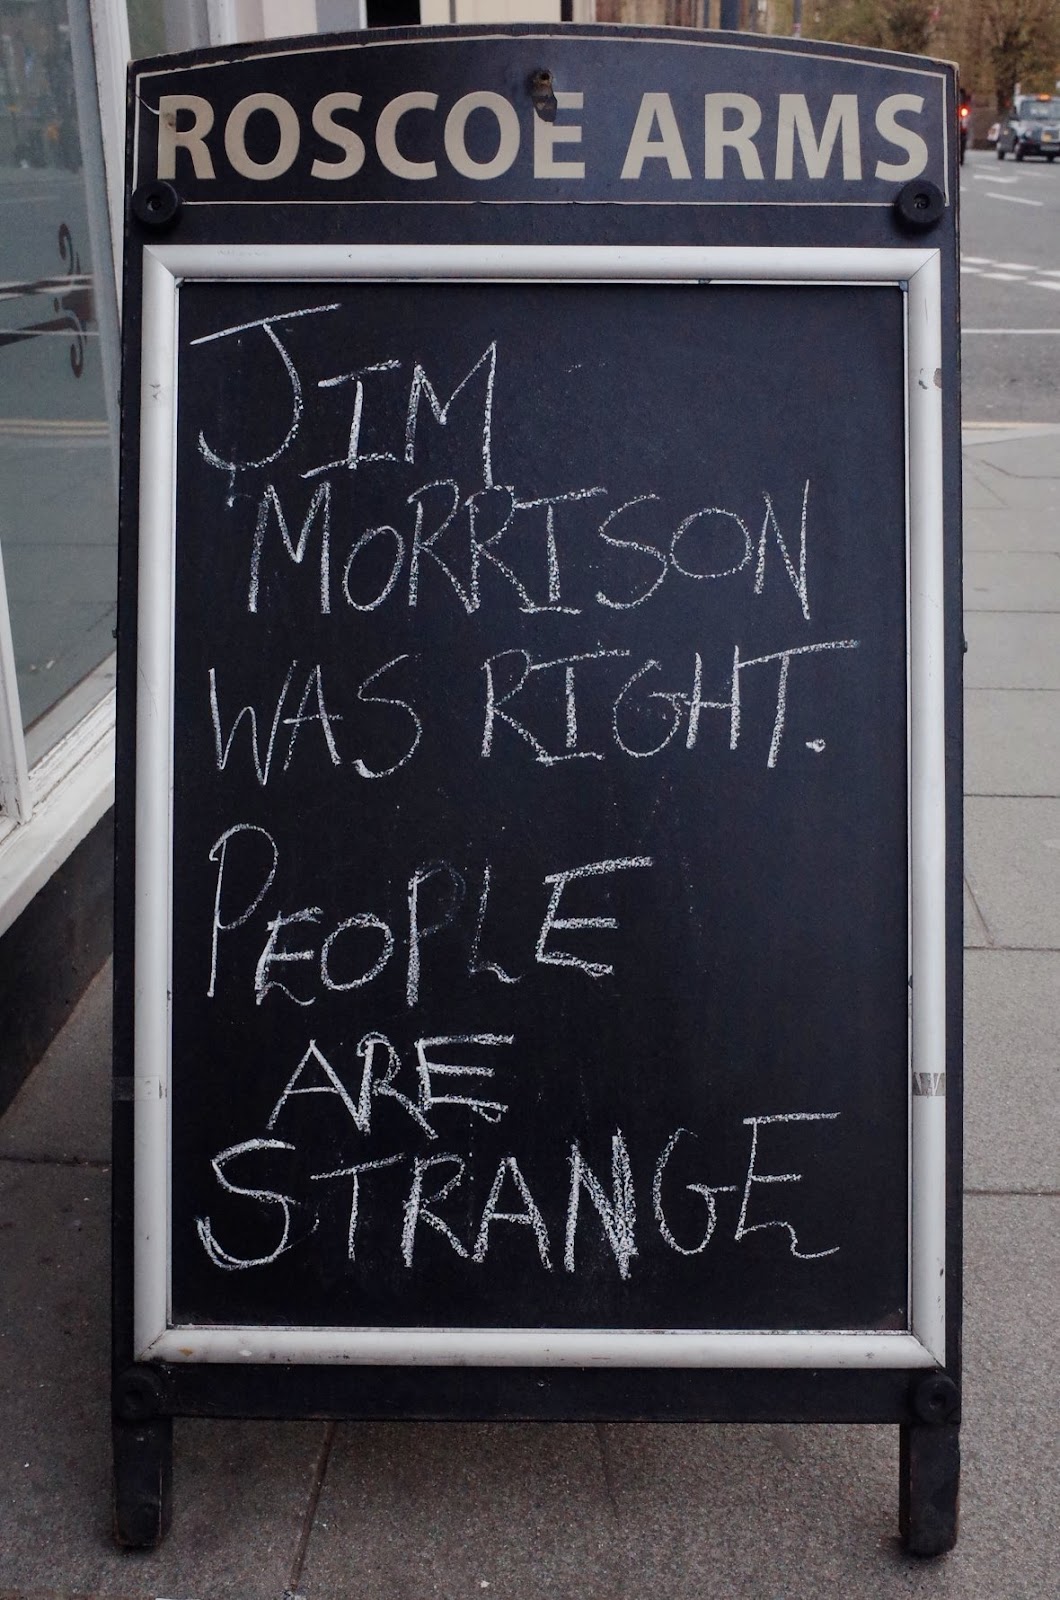 ROSCOE ARMS
JIM
MORRISON
WAS RIGHT.
PEOPLE
ARE
STRANGE